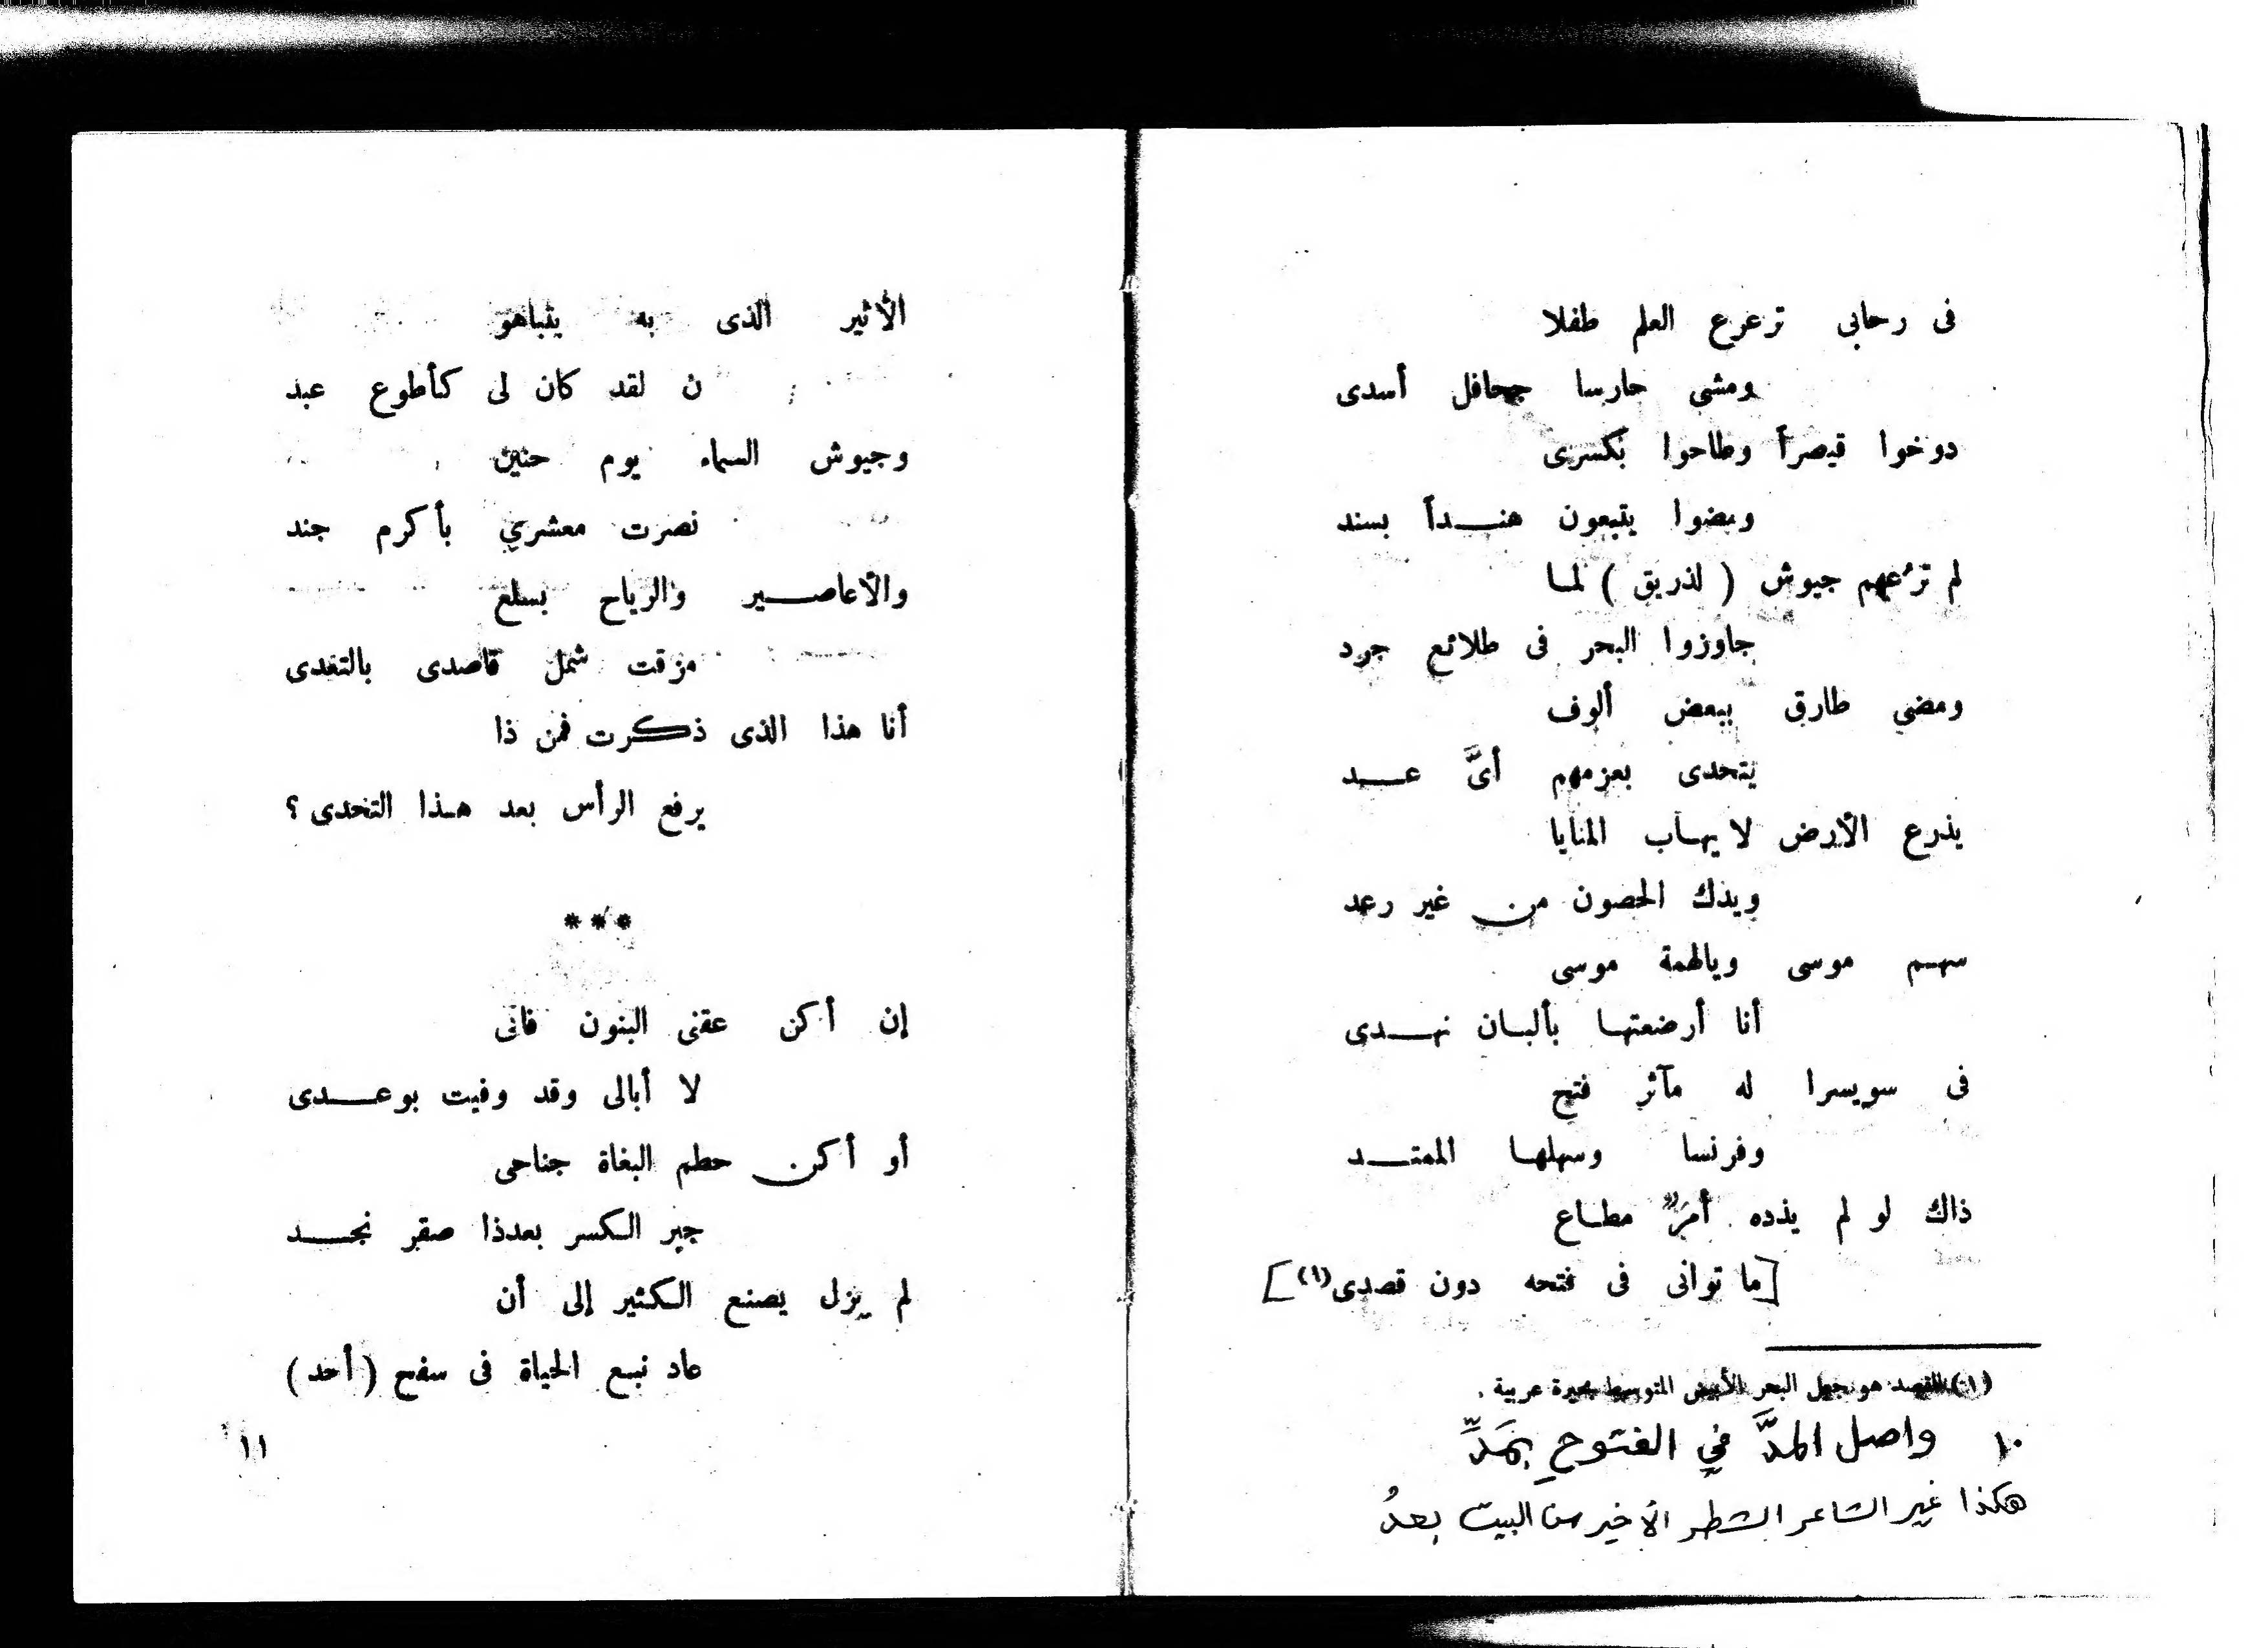 فى رحابى ترعرع العلم طفلا
ومشى حارسا جحافل أسدى
دوخوا قيصراً وطاحوا بكسرى
ومضوا يتبعون هنـــداً بسند
لم ترُعهم جيوش ( لذريق ) لمـا
جاوزوا البحر فى طلائع جرد
ومضي طارق ببعض ألوف
يتحدى بعزمهم أىَّ عـــد
يذرع الأرض لا يهـاب المنايا
ويدك الحصون من غير رعد
سهـم موسى ويالهمة موسى
أنا أرضعتهـا بألبـان نهـــدى
فى سويسرا له مآثر فتح
وفرنسا وسهلهـا الممتـــد
ذاك لو لم يذده أمرٌ مطـاع
[ما توانى فى فتحه دون قصدى(١)]
(١) القصد هو جعل البحر الأبيض المتوسط بحيرة عربية .
١٠ واصل المدَّ في الفتوحِ بمَدِّ
هكذا غير الشاعر الشطر الأخير من البيت بعدُ
الأثير الذى به يتباهو
ن لقد كان لى كأطوع عبد
وجيوش السماء يوم حنين
نصرت معشري بأكرم جند
والأعاصـــير والرياح بسلع
مزقت شمل قاصدى بالتعدى
أنا هذا الذى ذكرت فمن ذا
يرفع الرأس بعد هـذا التحدى ؟
***
إن أكن عقنى البنون فانى
لا أبالى وقد وفيت بوعـــدى
أو أكن حطم البغاة جناحى
جبر الكسر بعدذا صقر نجـــد
لم يزل يصنع الكثير إلى أن
عاد نبع الحياة فى سفح (أحد)
١١